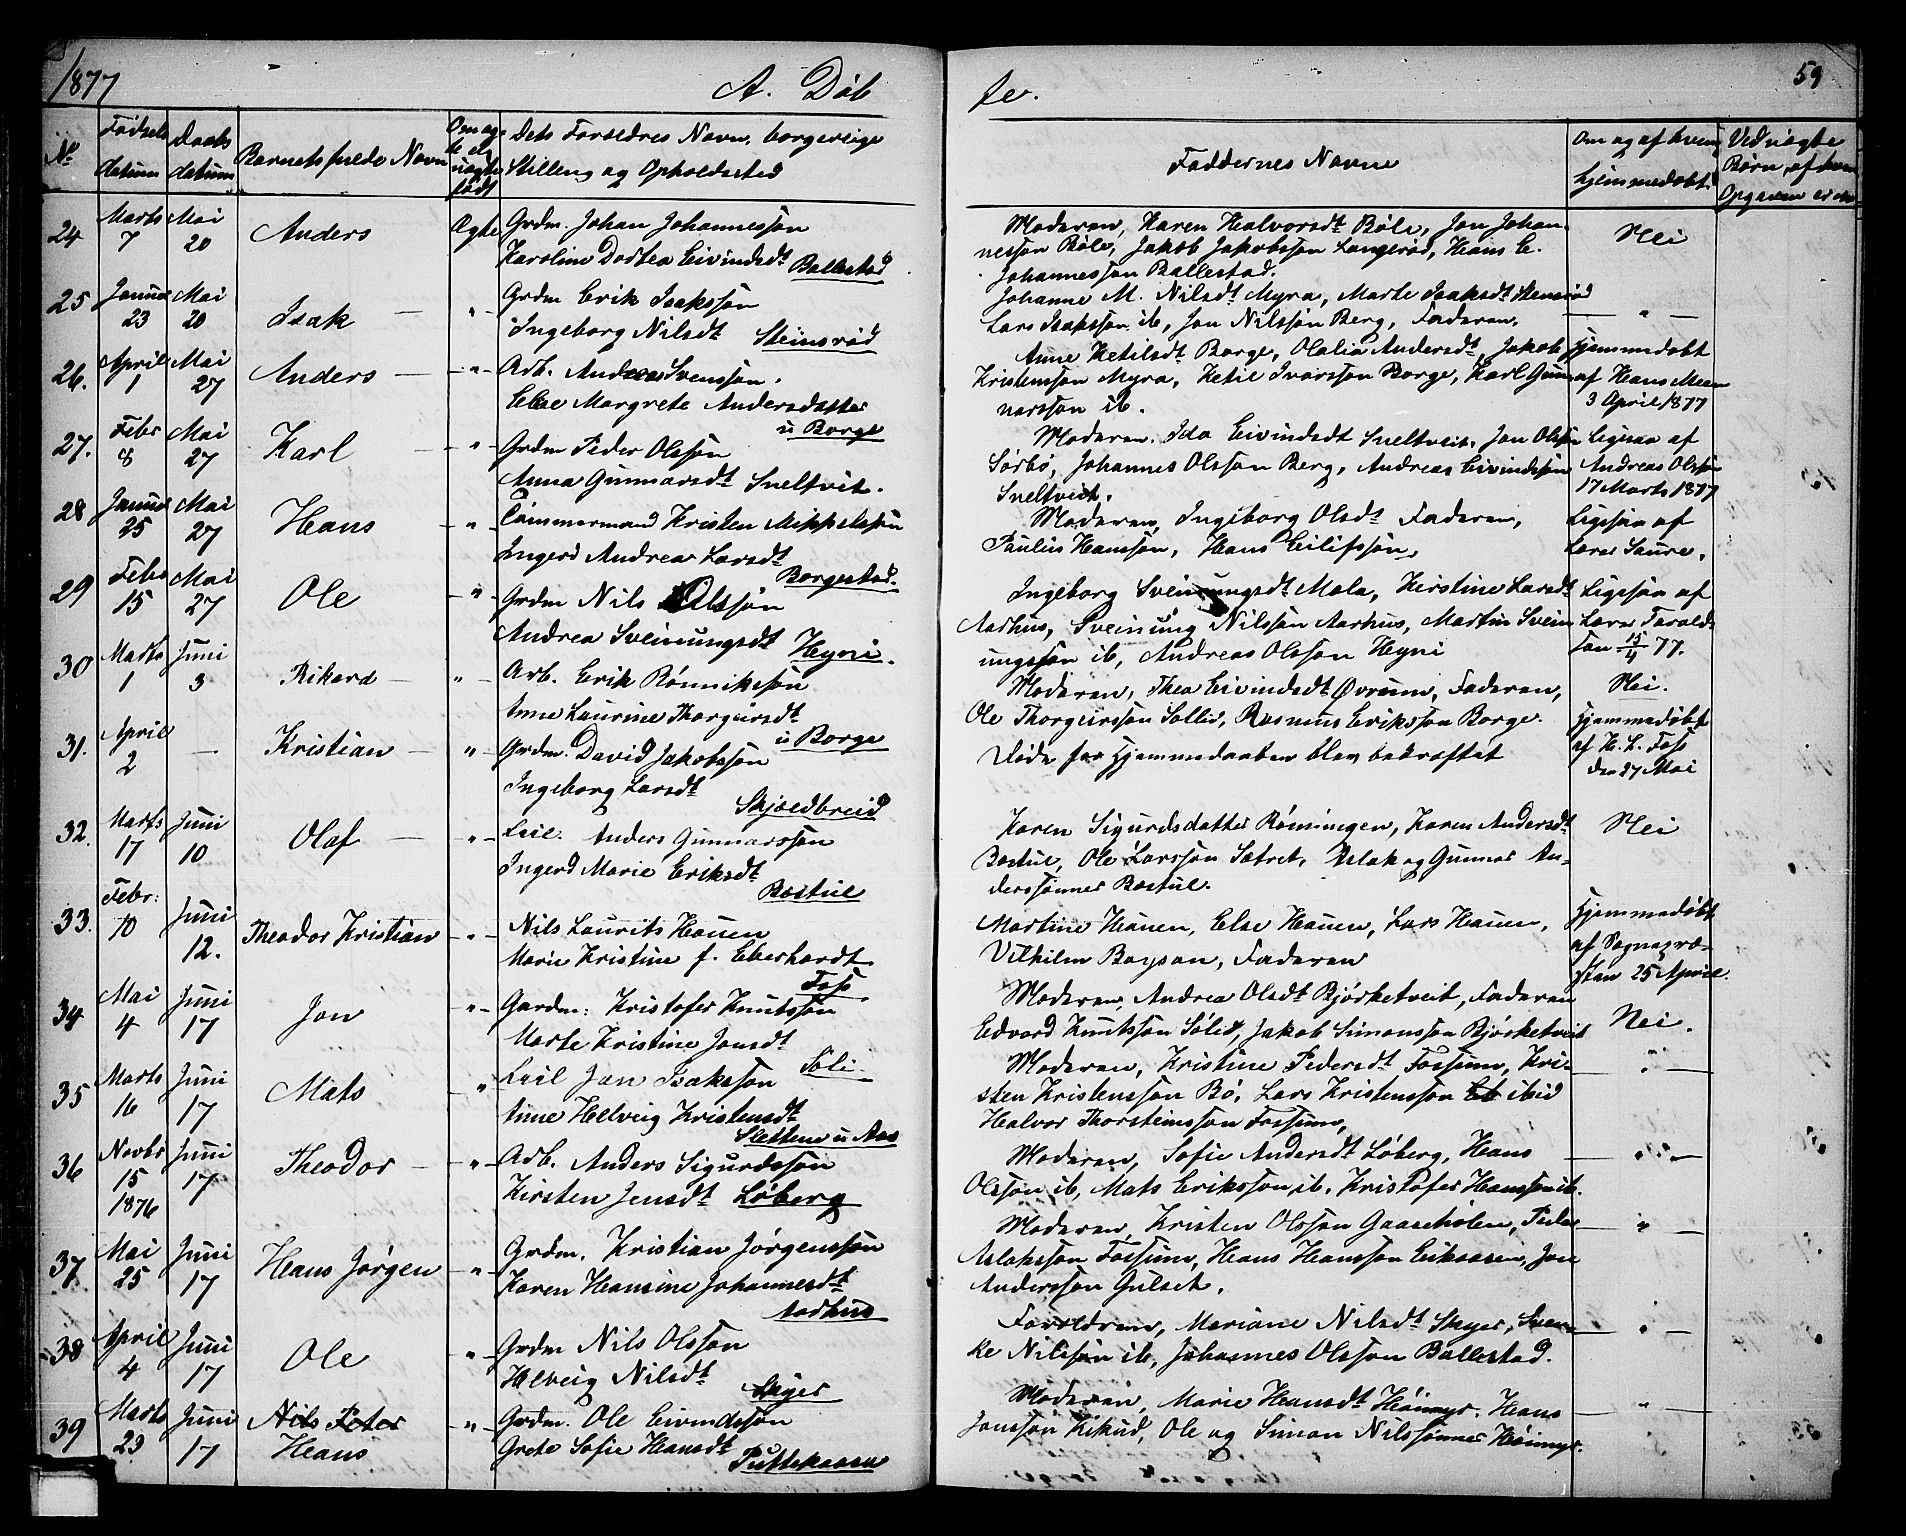 1877
A. Døb
te.
59
No
Fødsels datum
Daabs datum
Barnets fulde Navn
Om ægte el. uægte født
Dets Foreldres Navn, borgerlige
Stilling og Opholdssted
Faddernes Navne
Om og af hvem hjemmedøbt
Ved uægte
Børn, af hvem
24
Marts 7
Mai 20
Anders
Ægte
Grdm. Johan Johannesson
Karoline Dortea Eivindsdt Ballestad
Moderen, Karen Halvorsdt Bøle, Jon Johan-
nesson Bøle, Jakob Jakobsson Langerød, Hans E.
Johannesson Ballestad.
Nei
25
Januar 23
Mai 20
Isak
"
Grdm Erik Isaksson
Ingeborg Nilsdt Steinsrød
Johanne M. Nilsdt Myra, Marte Isaksdt Stensrød
Lars Isaksson ib, Jon Nilsson Berg, Faderen.
"
26.
April 1
Mai 27
Anders
"
Arb. Anders Svensson.
Else Margrete Andersdatter
u Borge
Anne Ketilsdt Borge, Olalia Andersdt, Jakob
Kristensson Myra, Ketil Ivarsson Borge, Karl Gun-
narsson ib.
Hjemmedøbt
af Hans
3 April 1877
27.
Febr 8
Mai 27
Karl
"
Grdm Peder Olsson
Anna Gunnarsdt Sneltvit.
Moderen. Ida Eivindsdt Sneltveit, Jon Olsson
Sørbø, Johannes Olsson Berg, Andreas Eivindsson
Sneltveit.
Ligesaa af
Andreas Olsson
17 Marts 1877
28
Januar 25
Mai 27
Hans
"
Tømmermand Kristen Mikkelsson
Ingerd Andrea Larsdt
Borgestad.
Moderen, Ingeborg Olsdt Faderen,
Paulus Hansson, Hans Eilifsson,
Ligesaa af
Lærer Saure.
29
Febr 15
Mai 27
Ole
"
Grdm Nils Olsson
Andrea Sveinungsdt Hyni.
Ingeborg Sveinungsdt Mala, Kirstine Larsdt
Aarhus, Sveinung Nilsson Aarhus, Martin Svein
ungsson ib, Andreas Olsson Hyni
Ligesaa af
Lærer Tarald-
son 15/4 77.
30
Marts 1
Juni 3
Rikard
"
Arb. Erik Rønniksson
Anne Laurine Thorgursdt
u Borge
Moderen, Thea Eivindsdt Øvrum, Faderen,
Ole Thorgursson Sollid, Rasmus Eriksson Borge.
Nei.
31.
April 2
Kristian
"
Grdm. David Jakobsson
Ingeborg Larsdt
Skjeldbreid
Døde før Hjemmedaaben blev bekræftet
Hjemmedøbt
af H. L. Foss
den 27 Mai
32.
Marts 17
Juni 10
Olaf
"
Leil. Anders Gunnarsson
Ingerd Marie Eriksdt
Bøstul
Karen Sigurdsdatter Rønningen, Karen Andersdt
Bøstul, Ole Larsson Sætret, Aslak og Gunnar An-
derssønner Bøstul.
Nei
33.
Febr: 10
Juni 12.
Theodor Kristian
"
Nils Laurits Hauen
Marie Kristine f. Eberhardt
Foss
Martine Hauen, Else Hauen, Lars Hauen,
Vilhelm Boysen, Faderen
Hjemmedøbt
af Sognepræ-
sten 25 April
34
Mai 4
Juni 17
Jon
"
Gardm: Kristofer Knutsson
Marte Kristine Jonsdt
Søli
Moderen, Andrea Olsdt Bjørketveit, Faderen
Edvard Knutsson Sølid, Jakob Simonsson Bjørketveit
Nei.
35
Marts 16
Juni 17
Mats
"
Leil Jan Isaksson
Anne Helvig Kristensdt
Slettene u Aas
Moderen, Kristine Pedersdt Fossum, Kri-
sten Kristensson Bø, Lars Kristensson ibid
Halvor Thorsteinsson Fossum,
"
36
Novbr 15 1876
Juni 17
Theodor
"
Arb. Anders Sigurdsson
Kirsten Jensdt Løberg
Moderen, Sofie Andersdt Løberg, Hans
Olsson ib, Mats Eriksson ib, Kristofer Hansson ib.
"
37
Mai 25
Juni 17
Hans Jørgen
"
Grdm. Kristian Jørgensson
Karen Hansine Johannesdt
Aarhus
Moderen, Kristen Olsson Gaaseholm, Peder
Aslaksson Fossum, Hans Hansson Eikaasen, Jon
Andersson Gulset.
"
38
April 4
Juni 17
Ole
"
Grdm Nils Olsson
Helveig Nilsdt
Skyer
Foreldrene, Mariane Nilsdt Skyer, Sven-
ke Nilsson ib, Johannes Olsson Ballestad.
"
39
Marts 29
Juni 17
Nils Peter
Hans
"
Grdm. Ole Eivindsson
Grete Sofie Hansdt
Puttekaasa
Moderen, Marie Hansdt Høimyr, Hans
Jansson Kikud, Ole og Simon Nilssønner Høimyr.
"